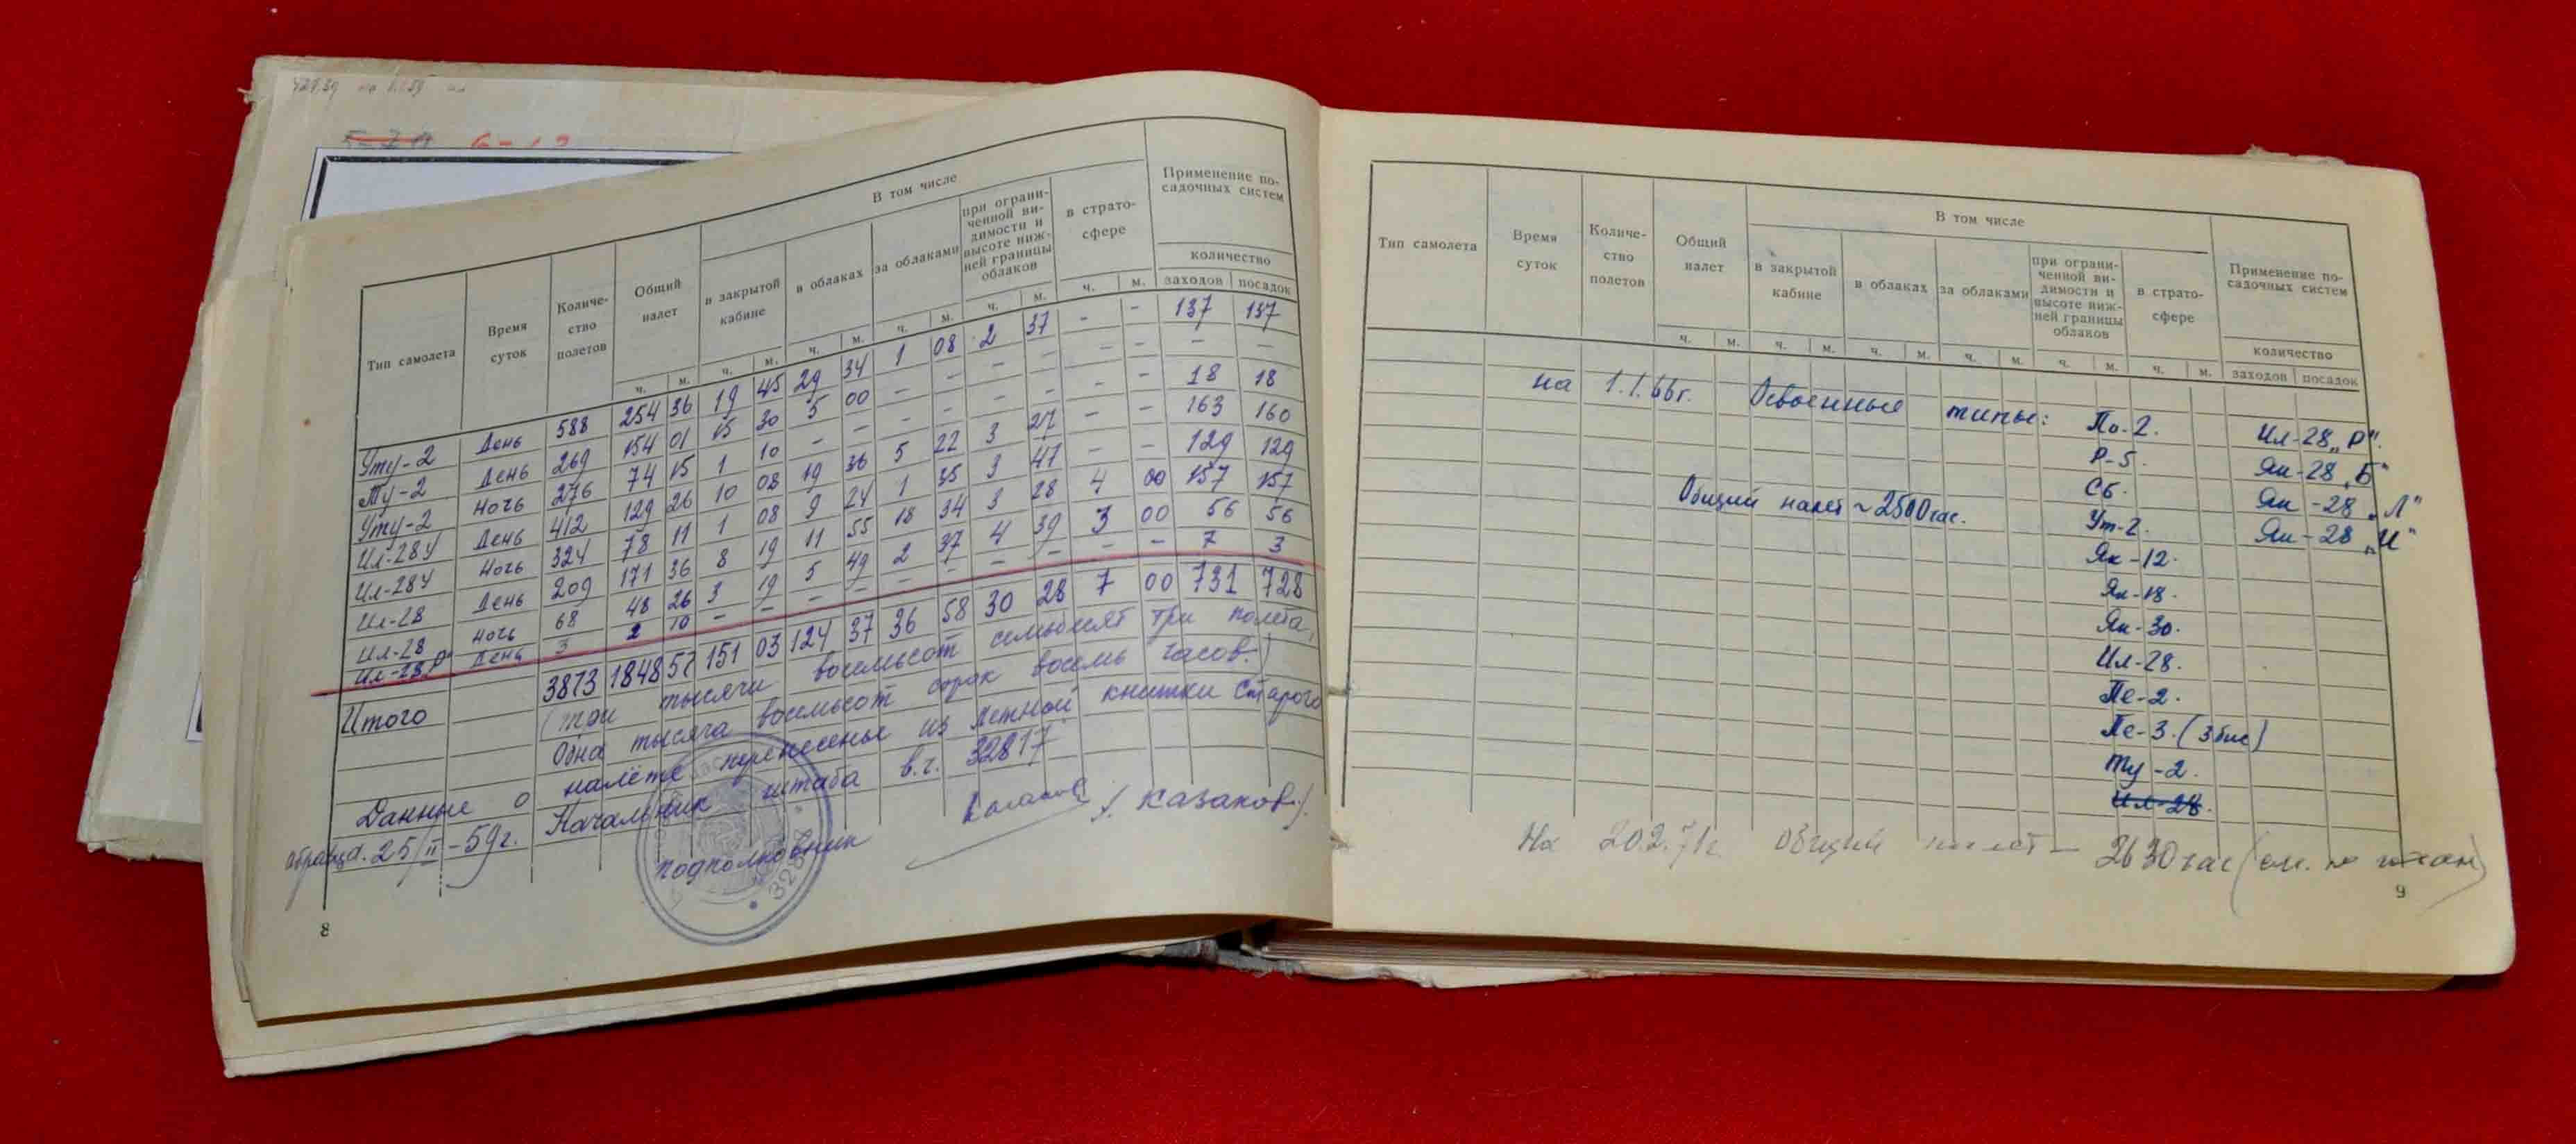 В том числе
Тип самолета Время суток Количество полетов Общий налет в закрытой кабине в облаках за облаками при ограниченной видимости и высоте нижней границы облаков в стратосфере Применение посадочных систем
количество
ч. м. ч. м. ч. м. ч. м. ч. м. ч. м. заходов посадок
Уту-2 День 588 254 36 19 45 29 34 1 08 2 37 - - 137 137
Ту-2 День 269 154 01 15 30 5 00 - - - - - - - -
Уту-2 Ночь 276 74 15 1 10 - - - - - - - - 18 18
Ил-28У День 412 129 26 10 08 19 36 5 22 3 27 - - 163 160
Ил-28У Ночь 324 78 11 1 08 9 24 1 35 3 47 - - 129 129
Ил-28 День 209 171 36 8 19 11 55 18 34 3 28 4 00 157 157
Ил-28 Ночь 68 48 26 3 19 5 49 2 37 4 39 3 00 56 56
Ил-28„Р" День 3 2 10 - - - - - - - - - - 7 3
Итого 3873 1848 57 151 03 124 37 36 58 30 28 7 00 731 728
(три тысячи восемьсот семьдесят три полета,
Одна тысяча восемьсот сорок восемь часов.)
Данные о налёте перенесены из летной книжки старого
образца. 25/II-59г. Начальник штаба в.ч. 32817
подполковник /Казаков/.
8
В том числе
Тип самолета Время суток Количество полетов Общий налет в закрытой кабине в облаках за облаками при ограниченной видимости и высоте нижней границы облаков в стратосфере Применение посадочных систем
количество
ч. м. ч. м. ч. м. ч. м. ч. м. ч. м. заходов посадок
на 1.1.66г. Освоенные типы: По-2. Ил-28„Р".
Р-5. Як-28„Б"
Сб. Як-28„Л"
Общий налет ~2500час. Ут-2. Як-28„И"
Як-12.
Як-18.
Як-30.
Ил-28.
Пе-2.
Пе-3. (3бис)
Ту-2.
Ил-28.
На 20.2.71г общий налет — 2630час (см. по годам)
9